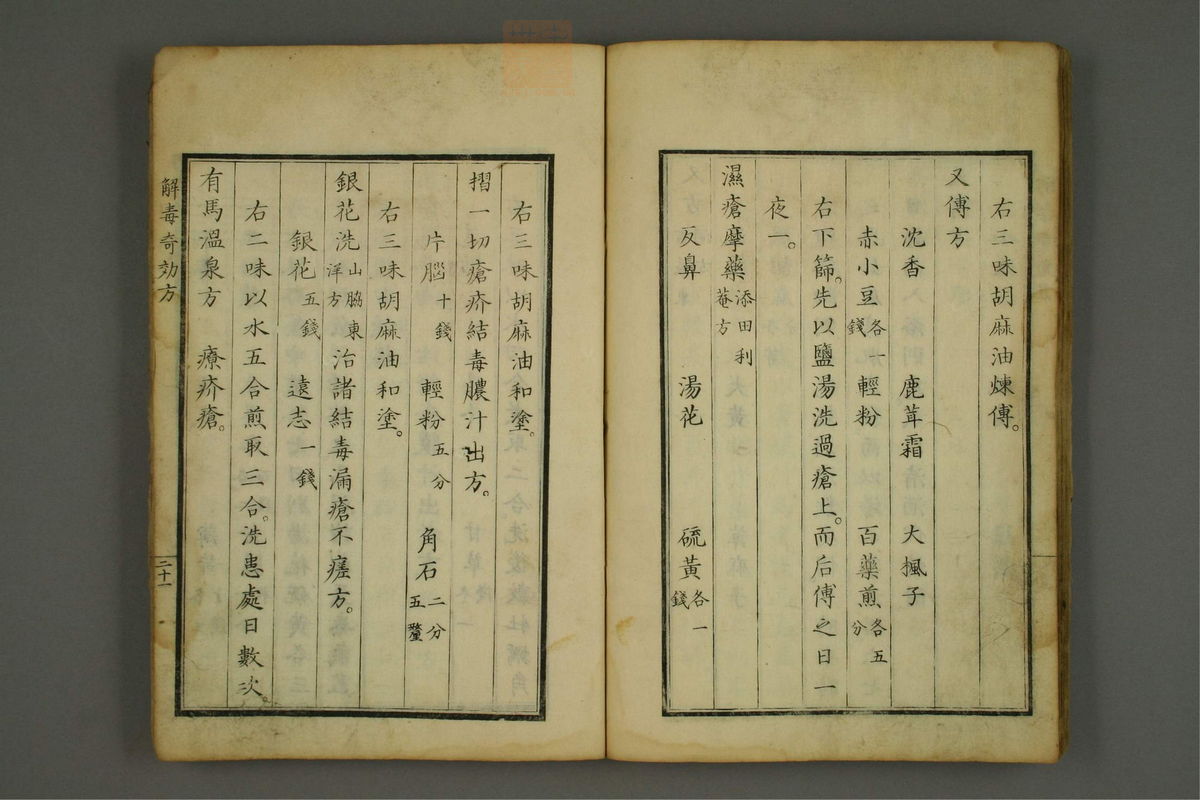 右三味胡麻油煉傳。
又傳方
沈香 鹿茸霜 大楓子
赤小豆各一錢 輕粉 百藥煎各五分
右下篩。先以鹽湯洗過瘡上。而后傳之日一
夜一。
濕瘡摩藥添田利菴方
反鼻 湯花 硫黃各一錢
右三味胡麻油和塗。
摺一切瘡疥結毒膿汁出方。
片腦十錢 輕粉五分 角石二分五釐
右三味胡麻油和塗。
銀花洗山脇東洋方治諸結毒漏瘡不瘥方。
銀花五錢 遠志一錢
右二味以水五合煎取三合。洗患處日數次。
有馬溫泉方 療疥瘡。
解毒奇効方
二十一